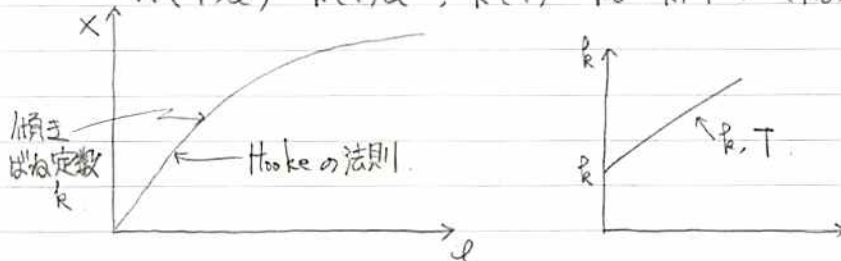 X
傾き
ばね定数
k
Hookeの法則.
l
k
k
k, T.